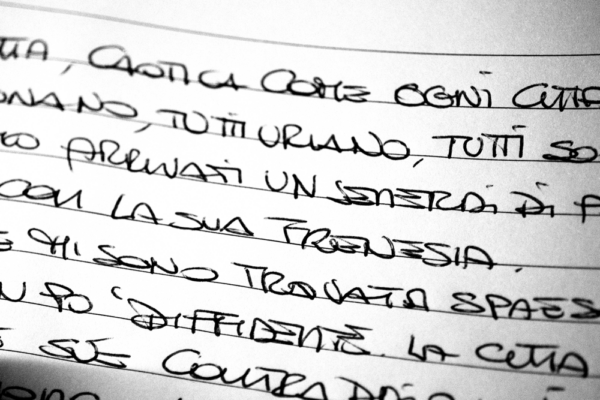 , CAOTICA COME OGNI CITTÀ
TUTTI URLANO, TUTTI SO
ARRIVATI UN VENERDÌ DI P
CON LA SUA FRENESIA.
MI SONO TROVATA SPAES
UN PO' DIFFIDENTE. LA CITTÀ
E SUE CONTRADDI